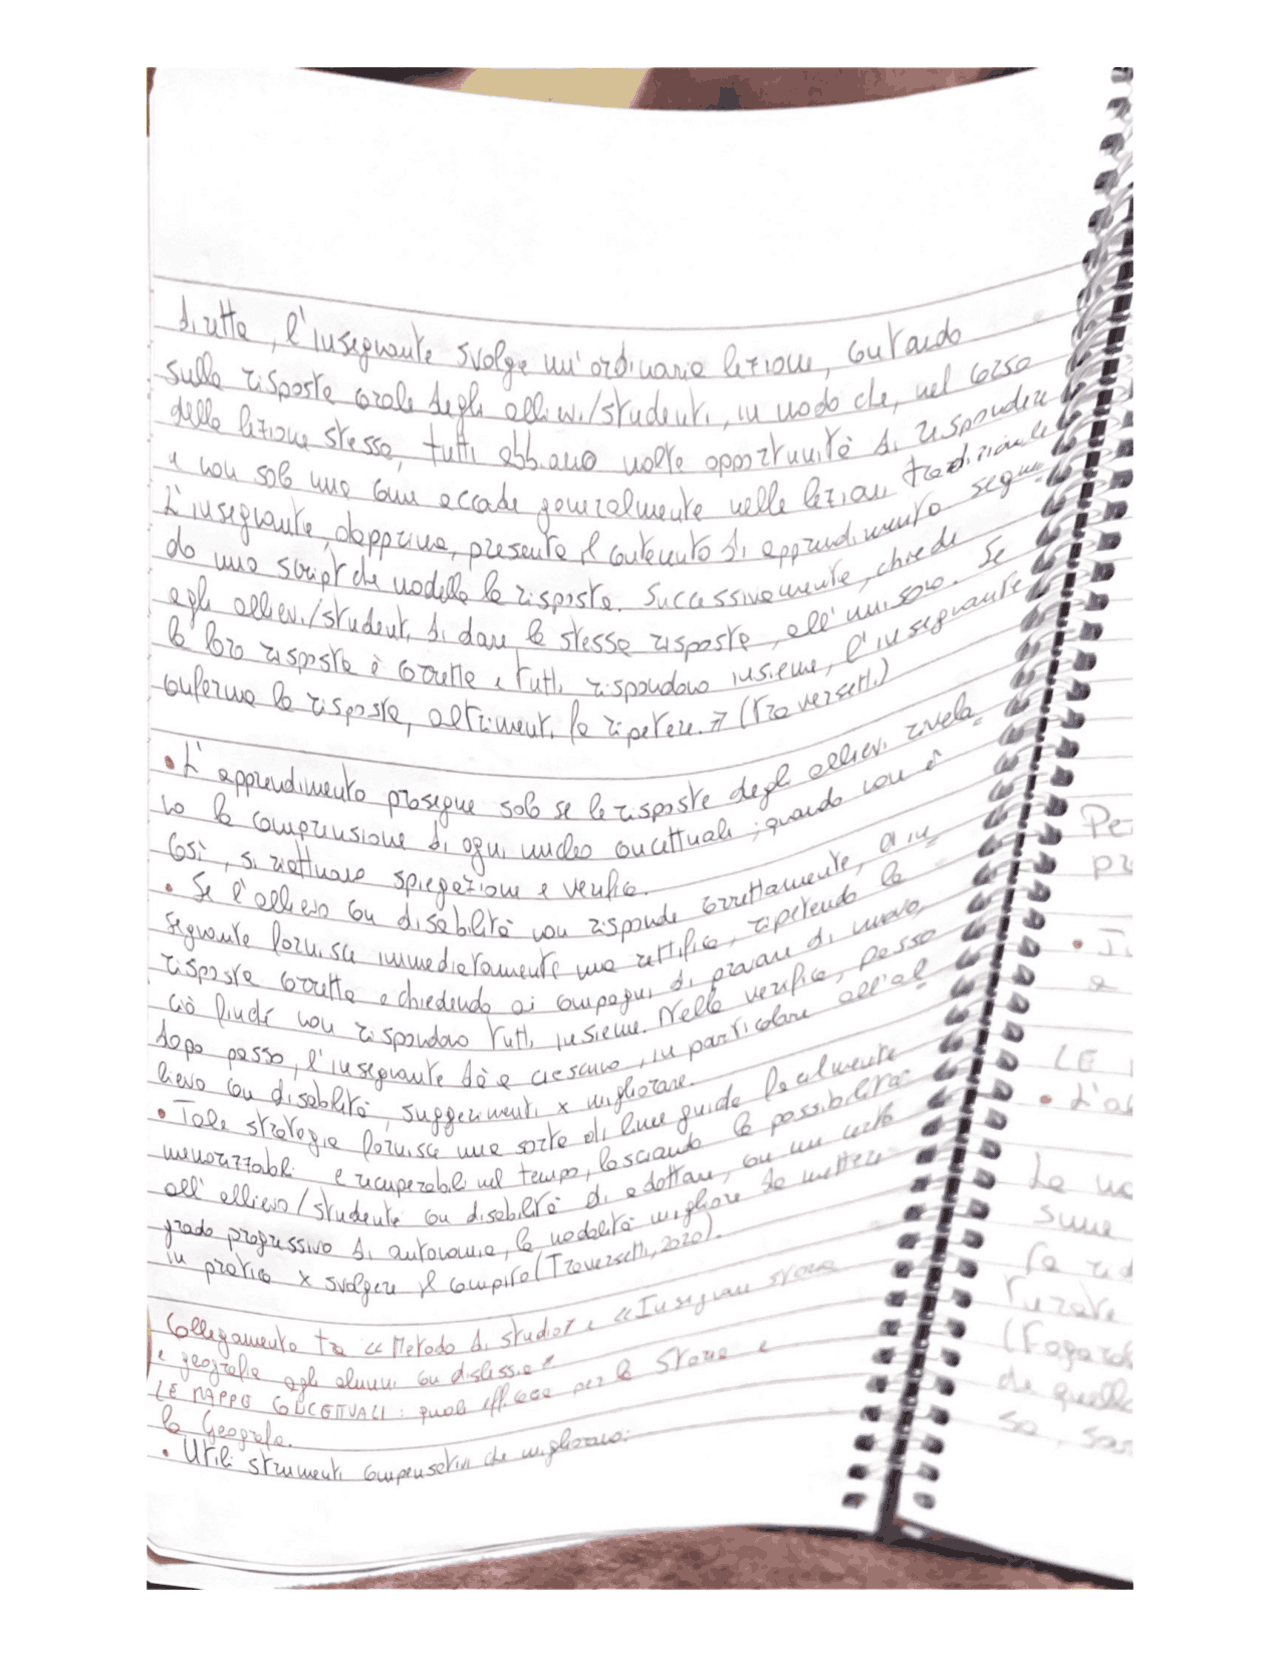 diretta, l'insegnante svolge un'ordinaria lezione, contando
sulla risposta corale degli allievi/studenti, in modo che, nel corso
della lezione stessa, tutti abbiano molte opportunità di rispondere
e non solo una come accade generalmente nelle lezioni tradizionali.
L'insegnante, dapprima, presenta il contenuto di apprendimento seguen
do uno script che modella la risposta. Successivamente, chiede
agli allievi/studenti di dare la stessa risposta, all'unisono. Se
la loro risposta è corretta e tutti rispondono insieme, l'insegnante
conferma la risposta, altrimenti la ripetere.» (Traversetti)
• L'apprendimento prosegue solo se le risposte degli allievi rivela-
no la comprensione di ogni nucleo concettuale; quando non è
così, si riattivano spiegazione e verifica.
• Se l'allievo con disabilità non risponde correttamente, l'in_
segnante fornisce immediatamente una rettifica, ripetendo la
risposta corretta e chiedendo ai compagni di provare di nuovo,
ciò finché non rispondono tutti insieme. Nella verifica, passo
dopo passo, l'insegnante dà a ciascuno, in particolare all'al
lievo con disabilità, suggerimenti x migliorare.
• Tale strategia fornisce una sorta di linee guida facilmente
memorizzabili e recuperabili nel tempo, lasciando la possibilità
all'allievo/studente con disabilità di adottare, con un certo
grado progressivo di autonomia, la modalità migliore da mettere
in pratica x svolgere il compito (Traversetti, 2020).
Collegamento tra «Metodo di studio» e «Insegnare storia
e geografia agli alunni con dislessia»
LE MAPPE CONCETTUALI: quali efficace per la Storia e
la Geografia.
• Utili strumenti compensativi che migliorano:
Pe
pr
• I
a
LE
• L'a
La
sume
fa
(Fogarol
de quella
so, sos